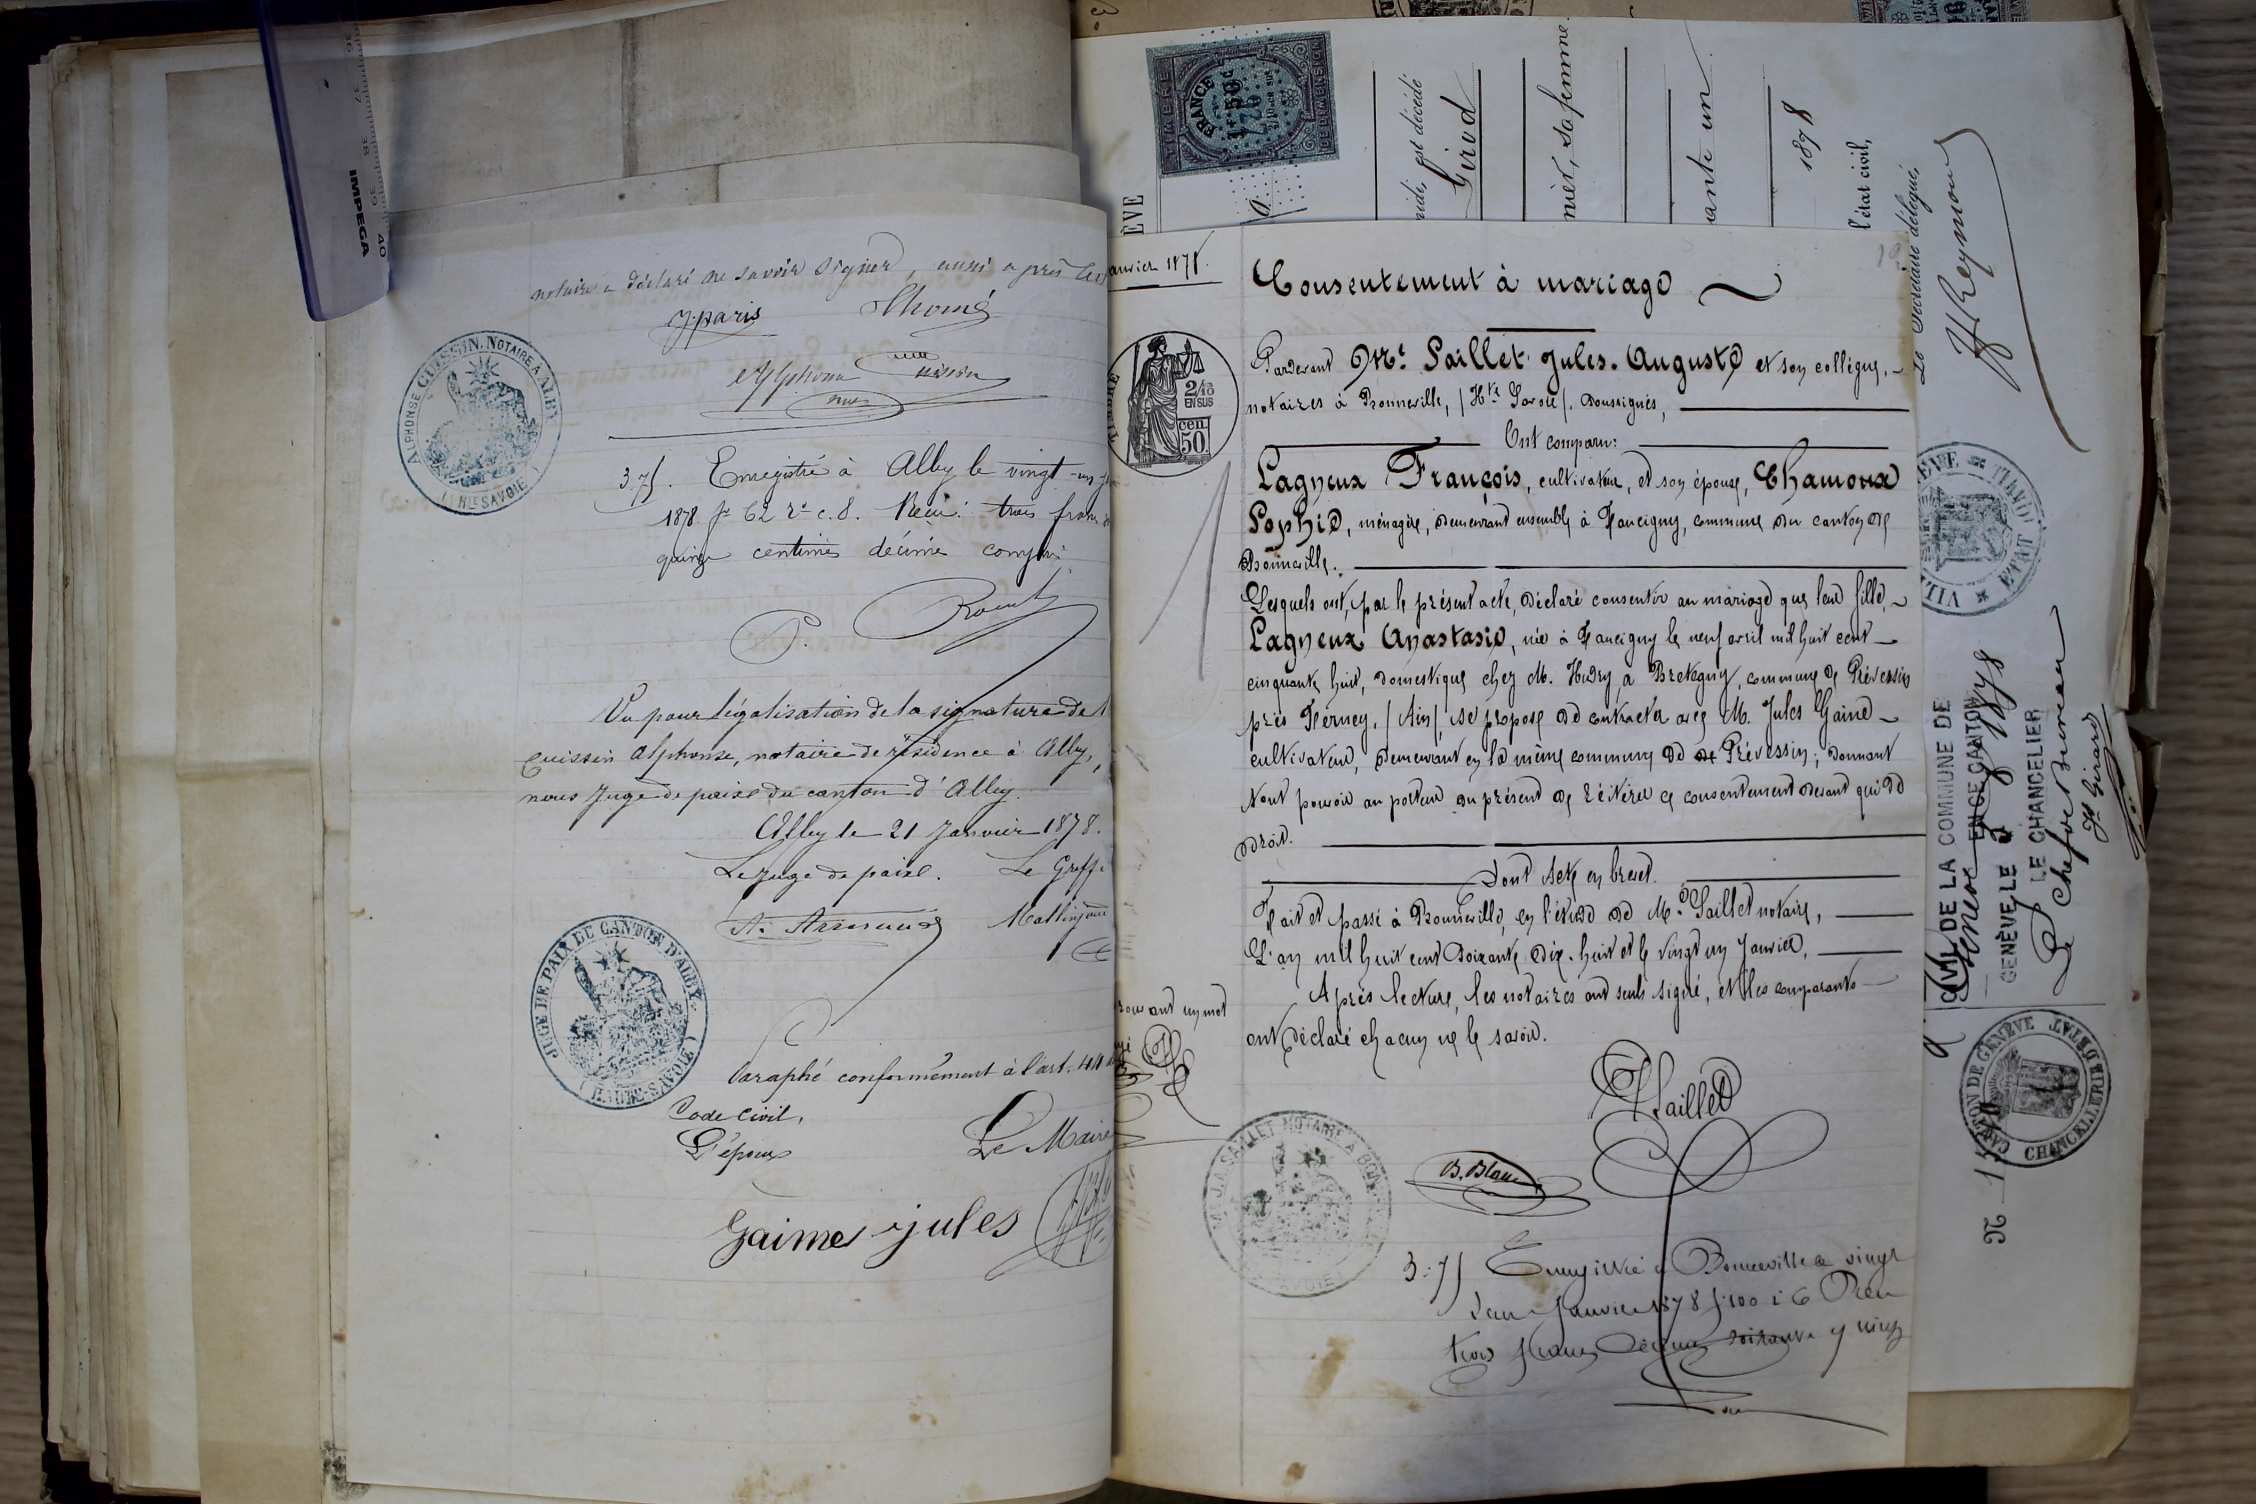 36
37
38
39
40
IMPEGA
notaire a déclaré ne savoir signer, aussi après lec
J. paris Thomé
Alphonse
ALPHONSE CUISSIN. NOTAIRE A ALBY
(HTE SAVOIE)
3.75. Enregistré à Alby le vingt-un
1878 fo 62 ro c. 8. Reçu: trois francs
quinze centimes décime compris
Vu pour légalisation de la signature de
Cuissin Alphonse, notaire de résidence à Alby,
nous Juge de paix du canton d'Alby.
Alby le 21 Janvier 1878.
Le juge de paix. Le Greff
JUGE DE PAIX DE CANTON D'ALBY
(HAUTE-SAVOIE)
Paraphé conformément à l'art. 44
Code Civil,
L'époux Le Maire
Gaime Jules
anvier 1878.
TIMBRE
2/10
EN SUS
50 cen
Consentement à mariage
Pardevant Me. Saillet Jules-Auguste et son collègue,
notaires à Bonneville, (Hte Savoie), soussignés,
Ont comparu:
Lagneux François, cultivateur, et son épouse, Chamoux
Sophie, ménagère, demeurant ensemble à Faucigny, commune du canton de
Bonneville.
Lesquels ont, par le présent acte, déclaré consentir au mariage que leur fille,
Lagneux Anastasie, née à Faucigny le neuf avril mil huit cent
cinquante huit, domestique chez M. Hudry, à Bretegny, commune de Prévessin
près Ferney, (Ain), se propose de contracter avec M. Jules Gaime
cultivateur, demeurant en la même commune de Prévessin; donnant
tout pouvoir au porteur du présent de réitérer ce consentement devant qui de
droit.
Dont Acte en brevet.
Fait et passé à Bonneville, en l'étude de Me. Saillet notaire,
L'an mil huit cent soixante dix-huit et le vingt un Janvier,
Après lecture, les notaires ont seuls signé, et les comparants
ont déclaré chacun ne le savoir.
un mot
JSaillet
B. Blanc
Me J.A. SAILLET NOTAIRE A
SAVOIE
3.75 Enregistré à Bonneville le vingt
deux Janvier 1878 fo 100 c 6 Reçu
trois francs décimes soixante quinze
TIMBRE
FRANCE
1f. 50c
DIMENSION
ÈVE
est décédé
Girod
nier, sa femme
ante un
1878
l'état civil,
Le Secrétaire délégué,
VILLE
ETAT CIVIL
CIVIL DE LA COMMUNE DE
EN CE CANTON
GENÈVE, LE
LE CHANCELIER
Le Chef de Bureau
CANTON DE GENÈVE
CHANCELLERIE D'ÉTAT